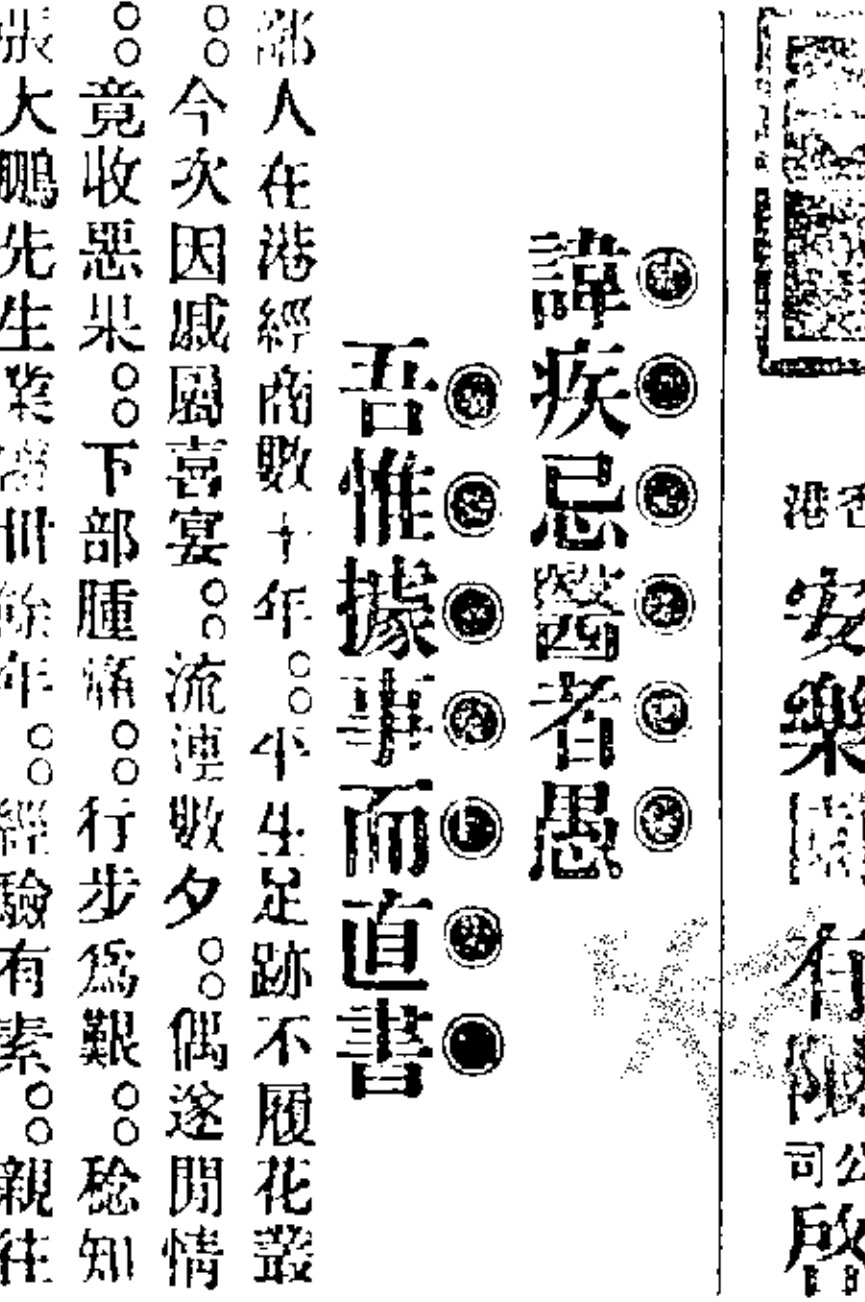 港
安樂
有限
司公
啟
諱疾忌醫者愚
吾惟據事而直書
鄙人在港經商數十年。。平生足跡不履花叢
。。今次因戚屬喜宴。。流連數夕。。偶遂閒情
。。竟收惡果。。下部腫痛。。行步為艱。。稔知
張大鵬先生業醫卅餘年。。經驗有素。。親往